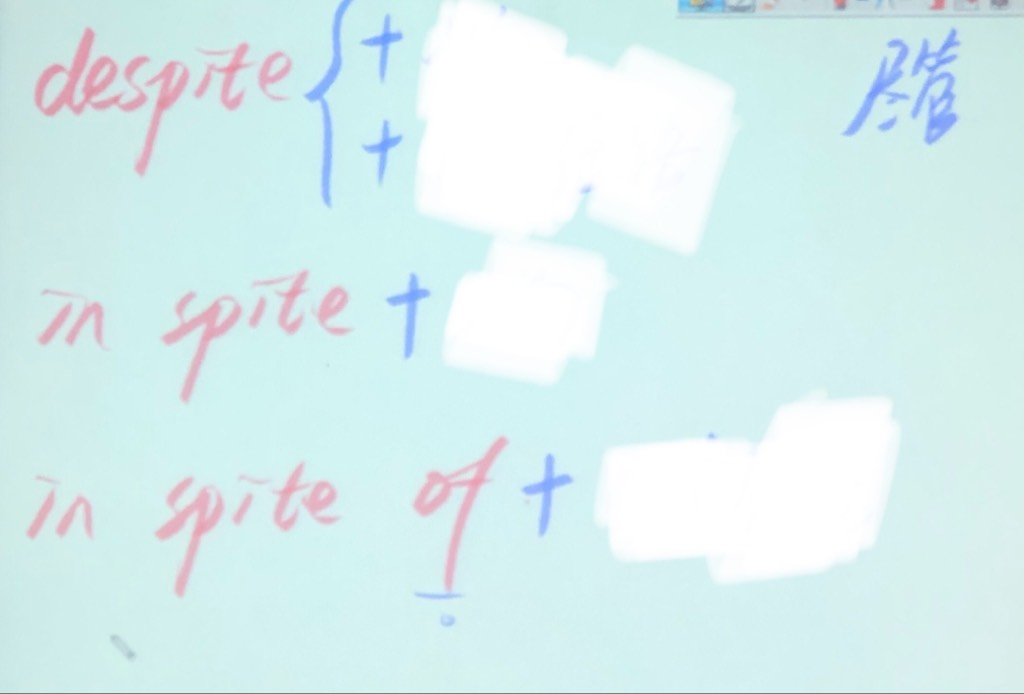 despite { + 尽管
+
in spite +
in spite of +